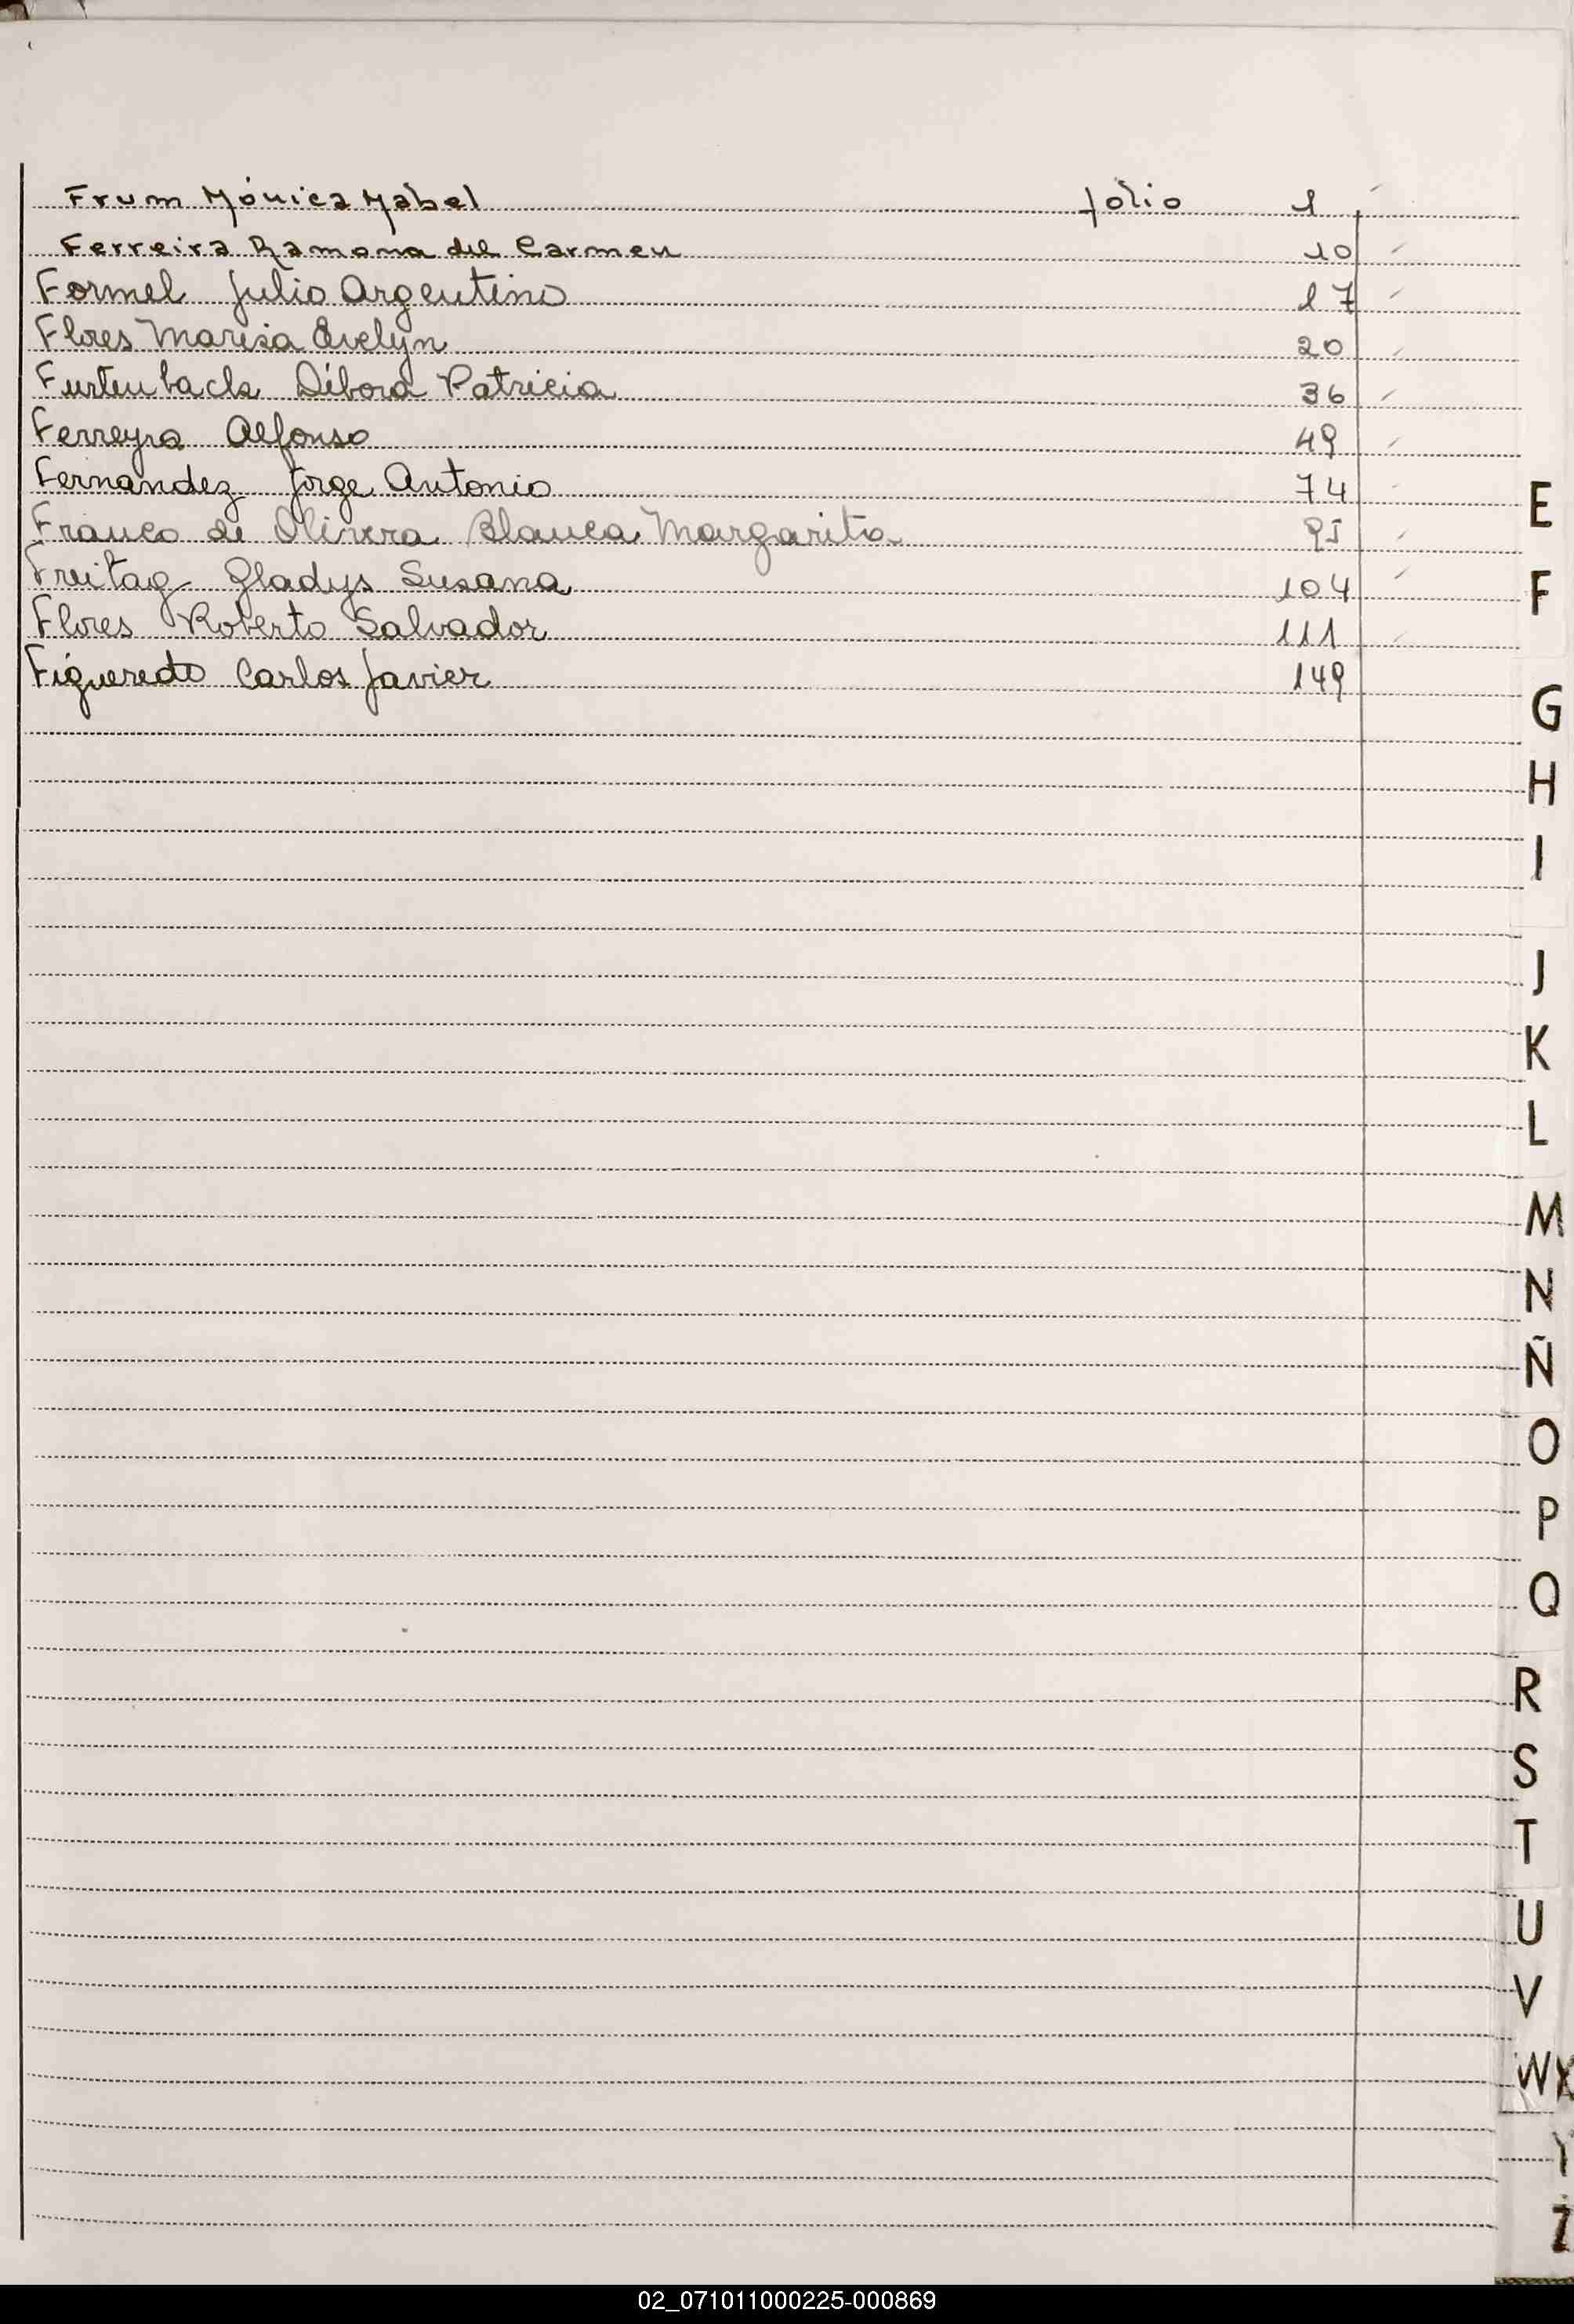 Frum Mónica Mabel folio 1
Ferreira Ramona del Carmen 10
Formel Julio Argentino 17
Flores Marisa Evelyn 20
Furtenback Débora Patricia 36
Ferreyra Alfonso 49
Fernandez Jorge Antonio 74
Franco de Olivera Blanca Margarita 95
Freitag Gladys Susana 104
Flores Roberto Salvador 111
Figueredo Carlos Javier 149
E
F
G
H
I
J
K
L
M
N
Ñ
O
P
Q
R
S
T
U
V
WX
Y
Z
02_071011000225-000869